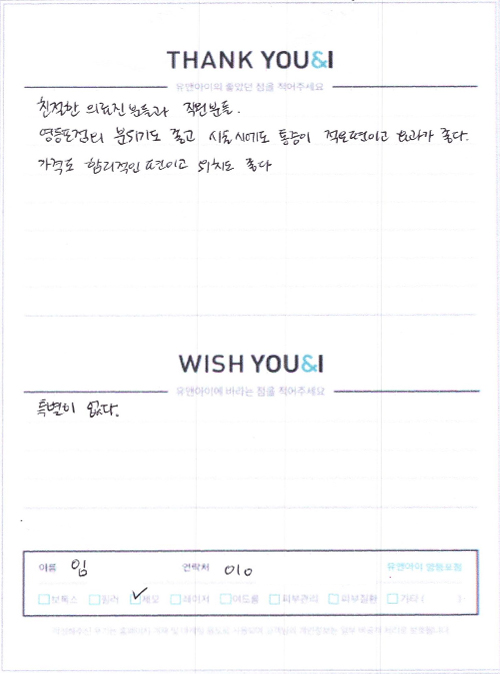 THANK YOU&I
유앤아이의 좋았던 점을 적어주세요
친절한 의료진 분들과 직원분들.
영등포점의 분위기도 좋고 시술시에도 통증이 적은편이고 효과가 좋다.
가격도 합리적인 편이고 위치도 좋다
WISH YOU&I
유앤아이에 바라는 점을 적어주세요
특별히 없다.
이름 임 연락처 010 유앤아이 영등포점
보톡스 필러 제모 레이저 여드름 피부관리 피부질환 기타 (